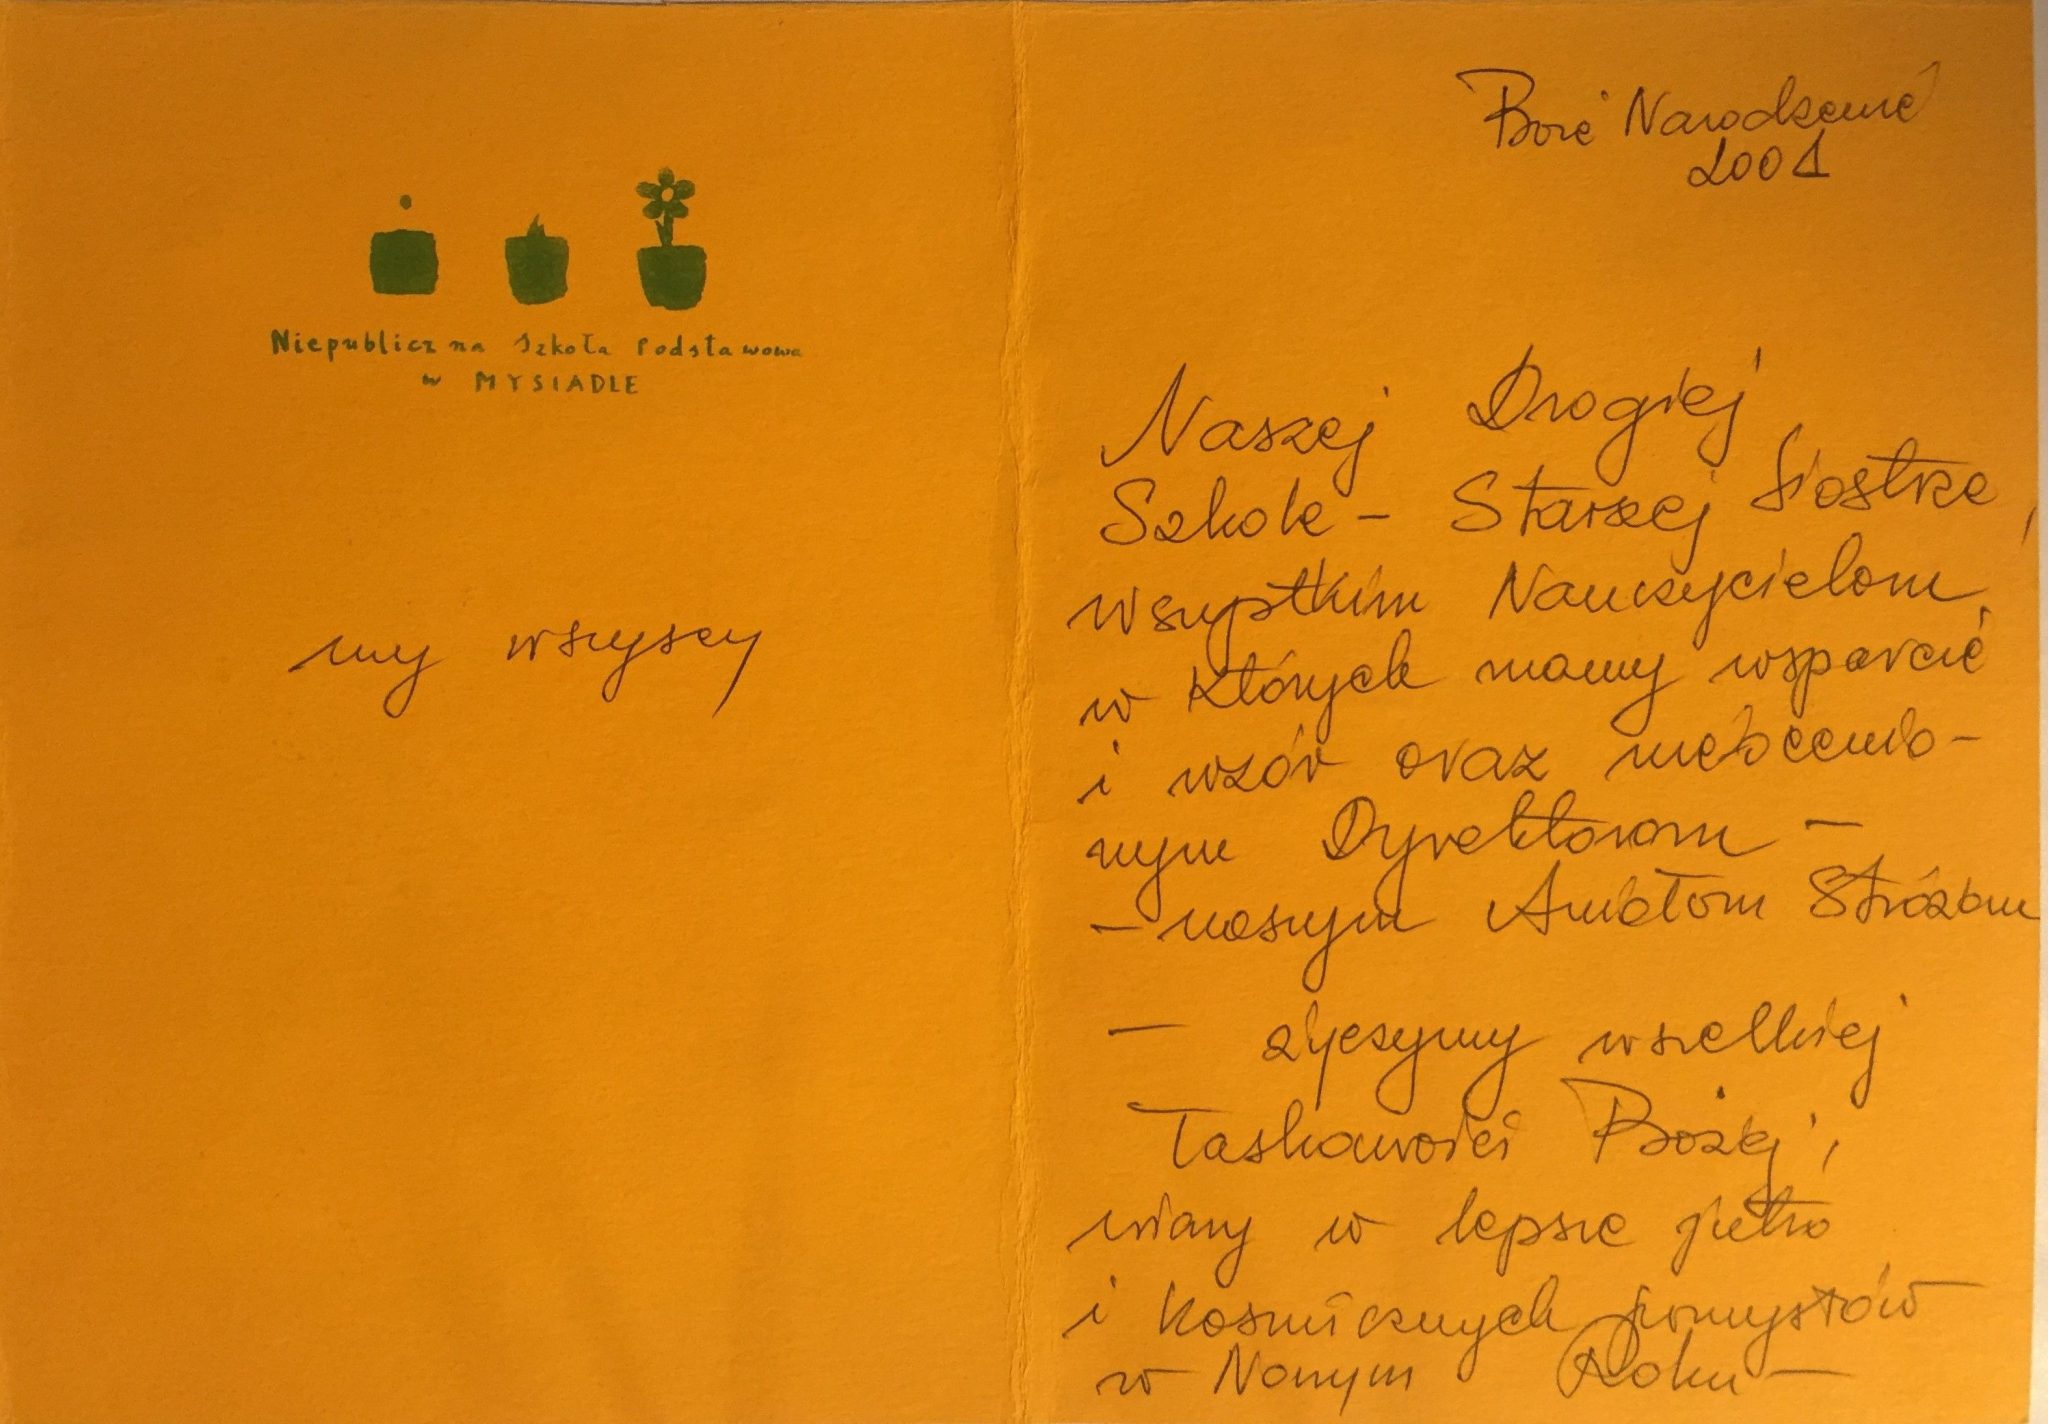 Niepubliczna Szkoła Podstawowa
w MYSIADLE
my wszyscy
Boże Narodzenie
2001
Naszej Drogiej
Szkole - Starszej Siostrze,
wszystkim Nauczycielom,
w których mamy wsparcie
i wzór oraz nieocenio-
nym Dyrektorom -
- naszym Aniołom Stróżom
- życzymy wszelkiej
łaskawości Bożej,
wiary w lepsze jutro
i kosmicznych pomysłów
w Nowym Roku -